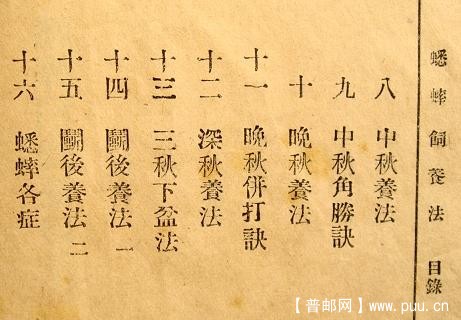 蟋蟀飼養法 目錄
八 中秋養法
九 中秋角勝訣
十 晚秋養法
十一 晚秋併打訣
十二 深秋養法
十三 三秋下盆法
十四 鬭後養法 一
十五 鬭後養法 二
十六 蟋蟀各症
【普邮网】www.puu.cn